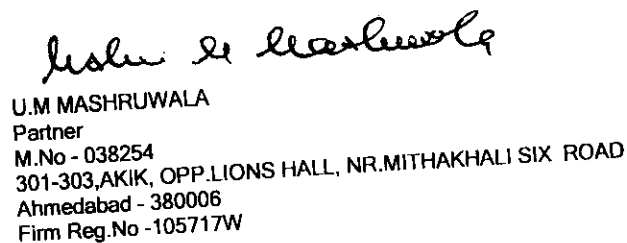 U.M MASHRUWALA
Partner
M.No - 038254
301-303,AKIK, OPP.LIONS HALL, NR.MITHAKHALI SIX ROAD
Ahmedabad - 380006
Firm Reg.No -105717W